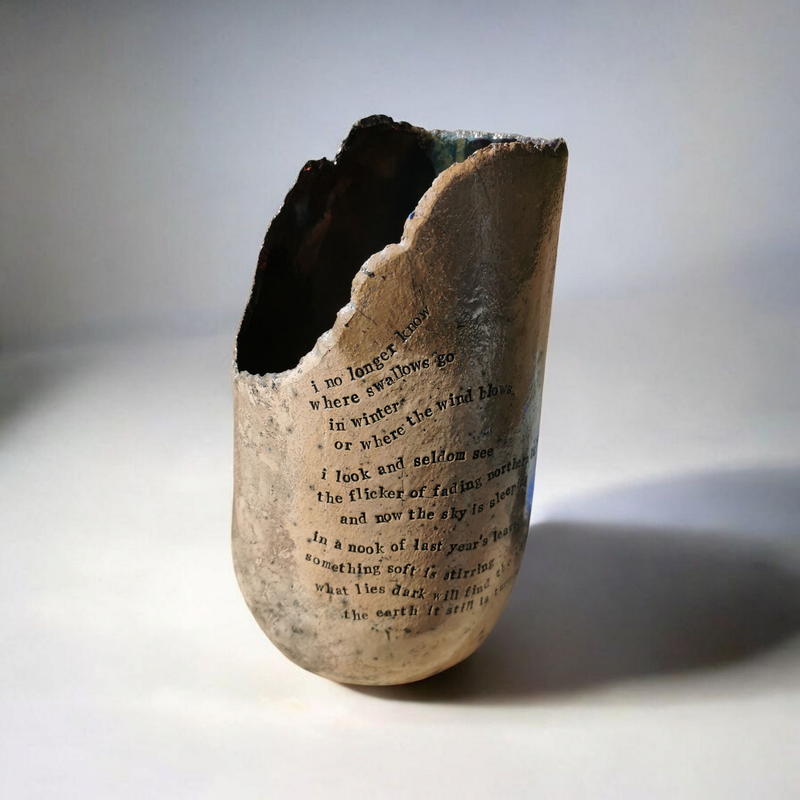 i no longer know
where swallows go
in winter
or where the wind blows
i look and seldom see
the flicker of fading northern
and now the sky is
in a nook of last year's
something soft is stirring
what lies dark will find the
the earth it still is